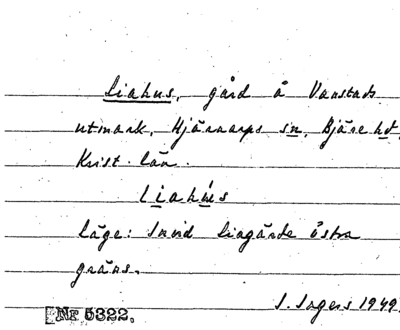 Liahus, gård å Vanstads
utmark, Hjärnarps sn, Bjäre hd,
Krist. län.
liahús
läge: invid Liagårde östra
gräns.
J. Sagers 1949.
Nr 5322.